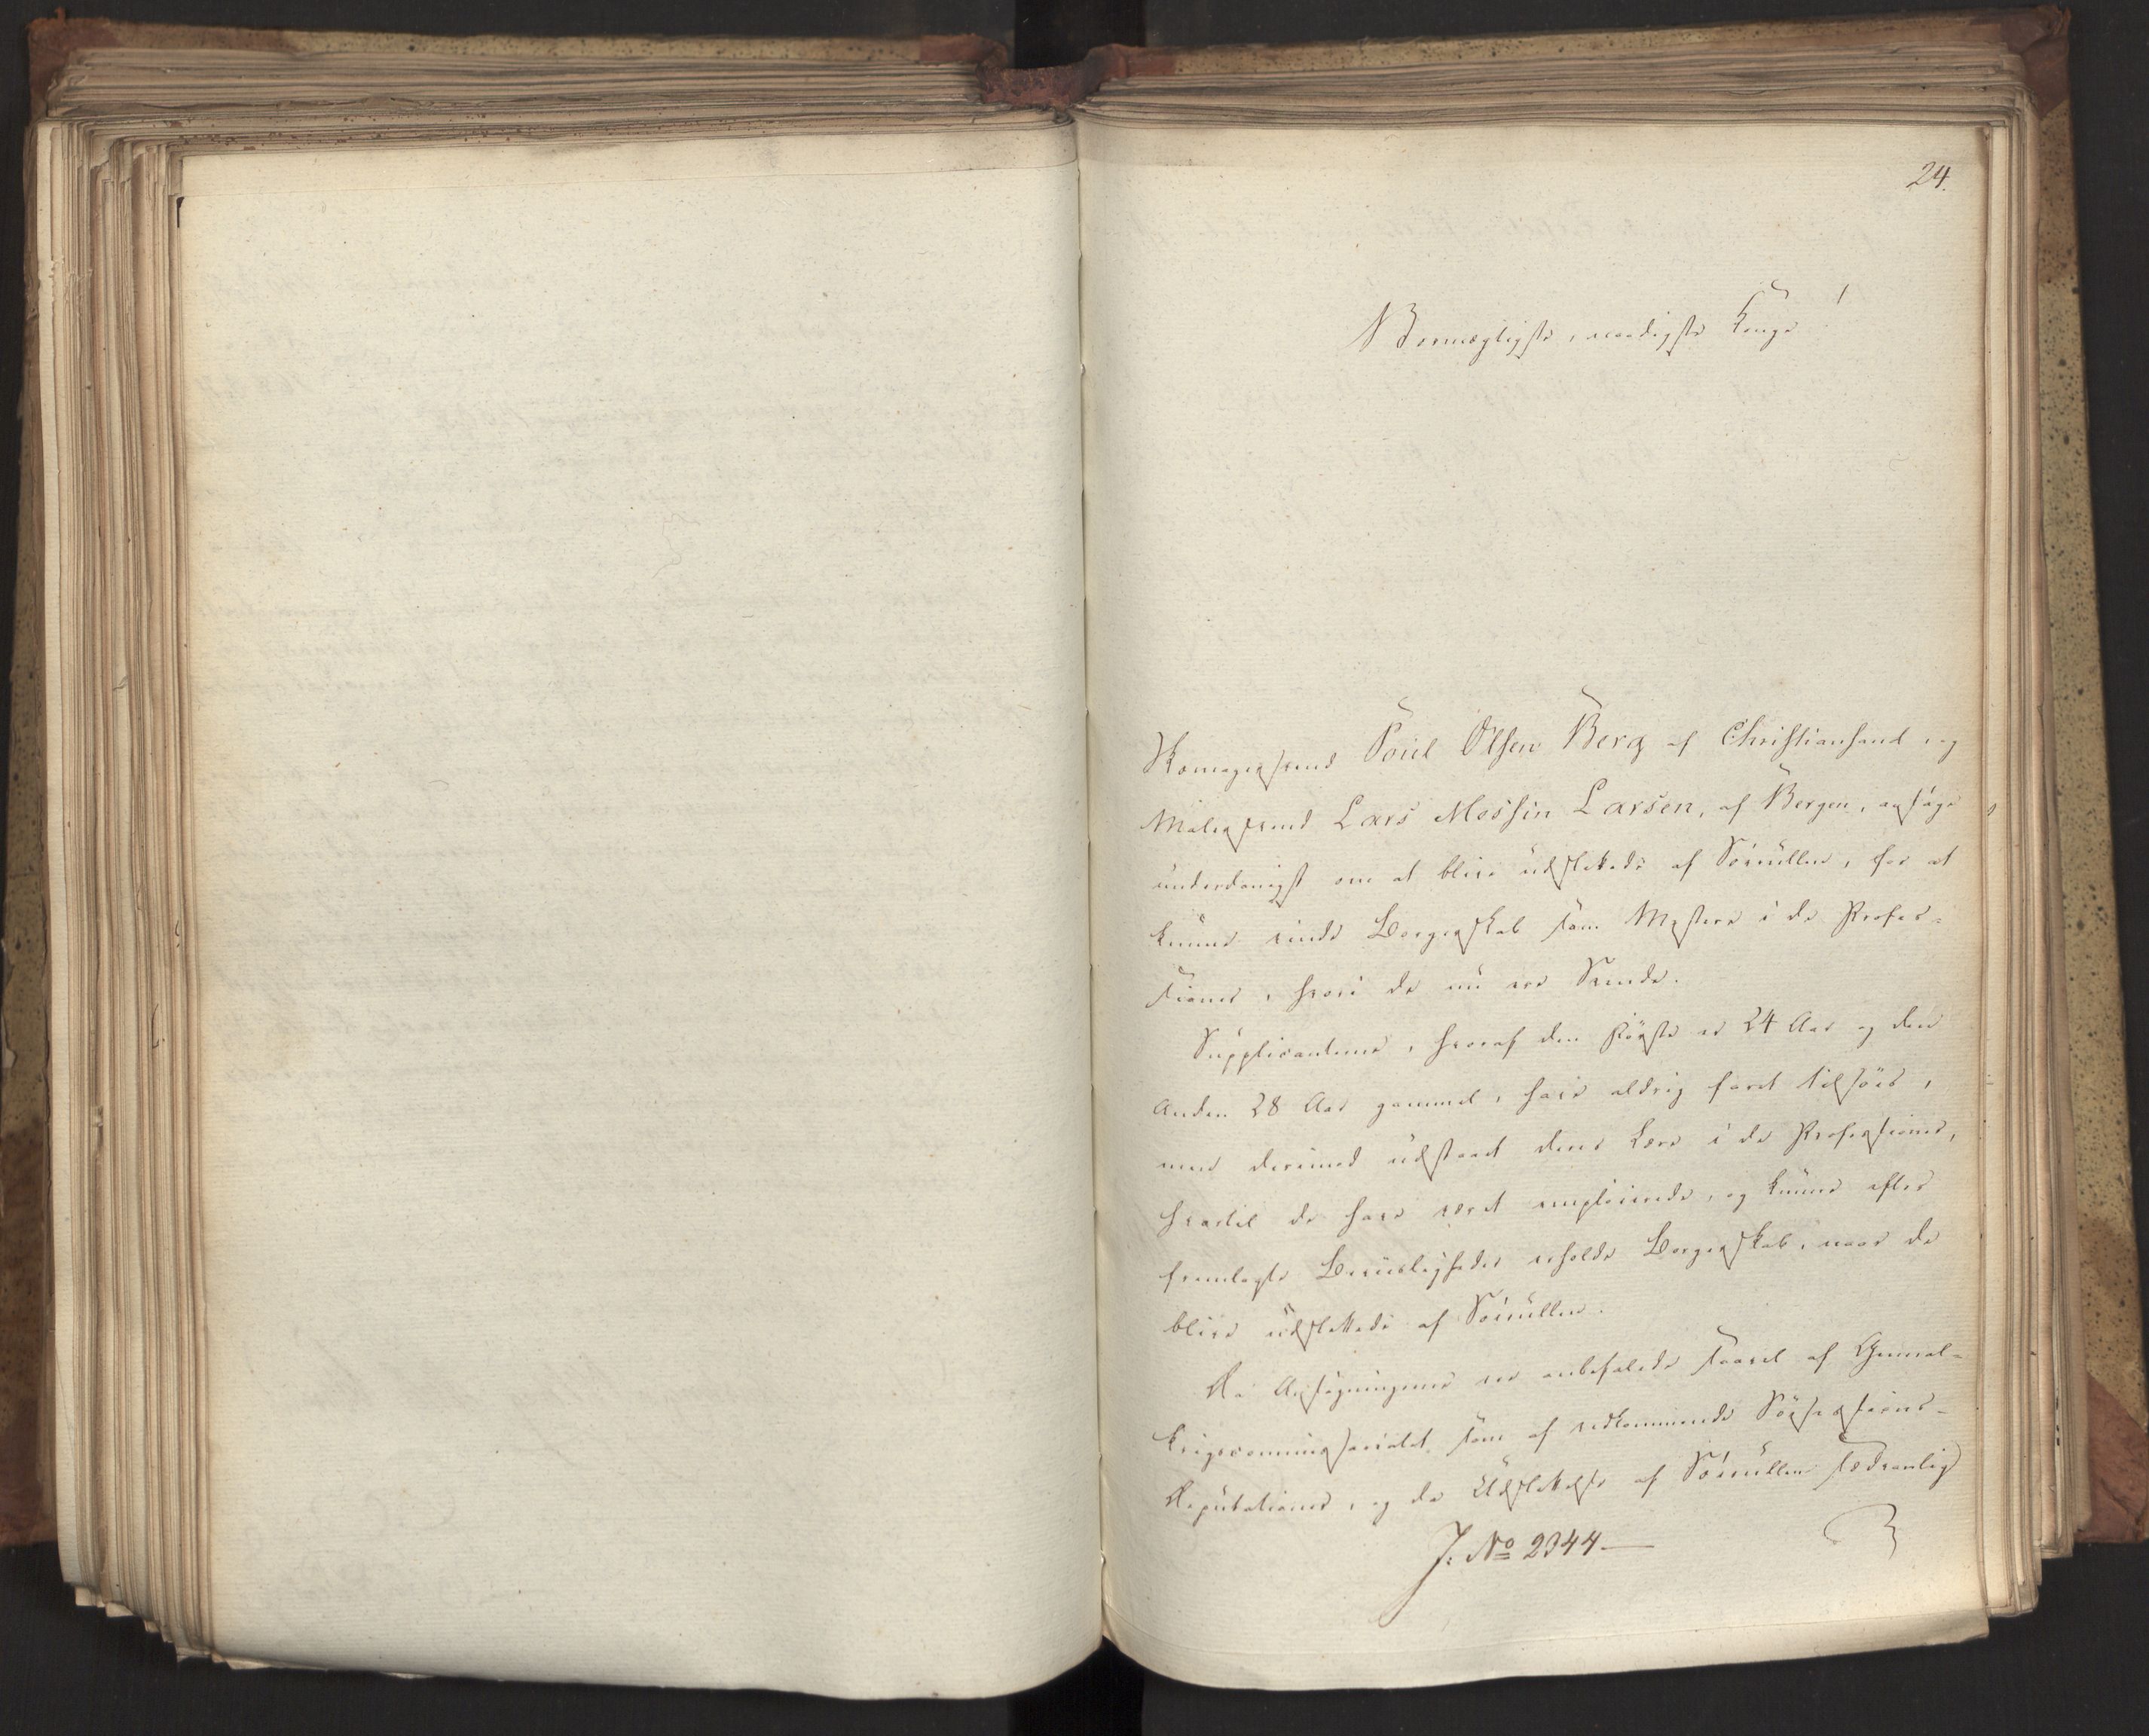 24.
Stormægtigste, naadigste Konge!
Skomagersvend Poul Olsen Berg af Christiansand, og
Malersvend Lars Messin Larsen, af Bergen, ansøge
underdanigst om at blive udslettede af Sørullen, for at
kunne vinde Borgerskab som Mestere i de Profes-
sioner, hvori de nu ere Svende.
Supplicanterne, hvoraf den første er 24 Aar og den
Anden 28 Aar gammel, have aldrig faret tilsøes,
men derimod udstaaet deres Lære i de Professioner,
hvortil de have været emploierede, og kunne efter
fremlagte Beviisligheder erholde Borgerskab, naar de
blive udslettede af Sørullen.
Da Ansøgningerne ere anbefalede saavel af General-
krigscommissariatet som af vedkommende Søsessions-
Deputationer, og da Udslettelse af Sørullen sædvanlig
J: No 2344